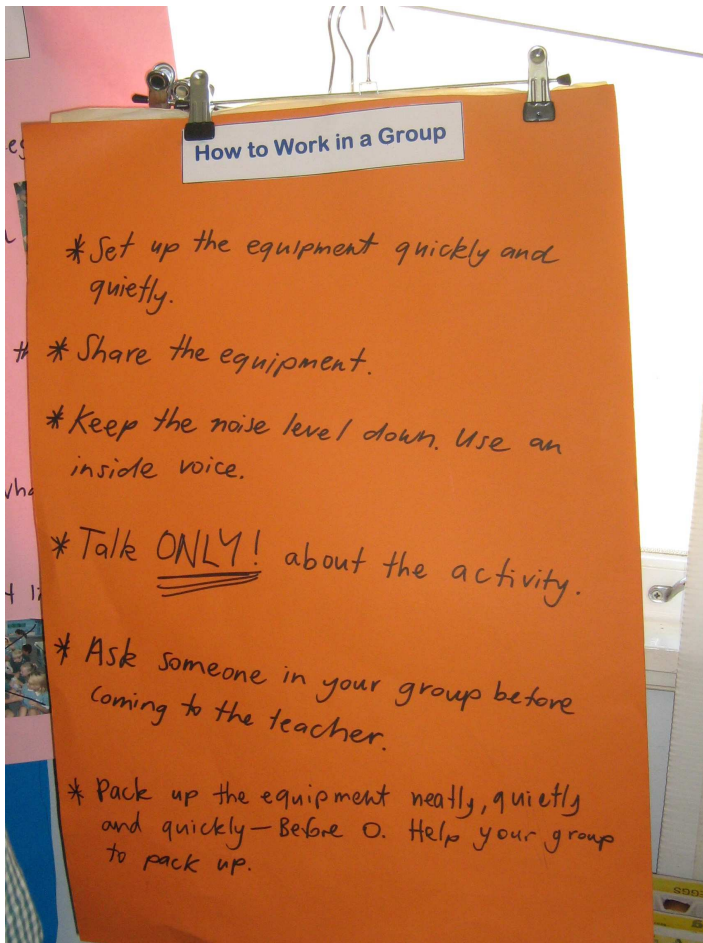 How to Work in a Group
* Set up the equipment quickly and
quietly.
* Share the equipment.
* Keep the noise level down. Use an
inside voice.
* Talk ONLY! about the activity.
* Ask someone in your group before
coming to the teacher.
* Pack up the equipment neatly, quietly
and quickly — Before 0. Help your group
to pack up.